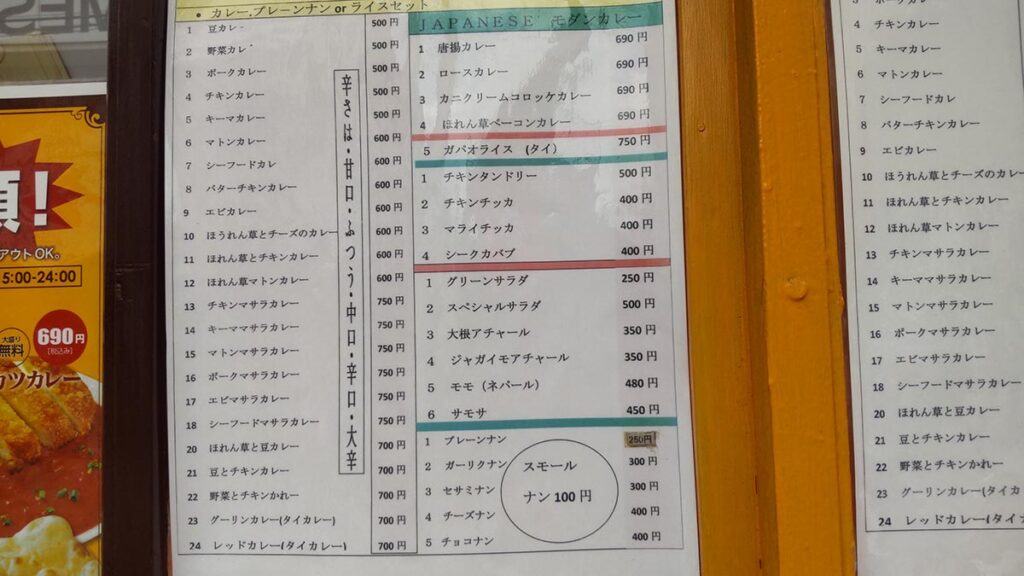 • カレー.プレーンナン or ライスセット
1 豆カレー 500円
2 野菜カレー 500円
3 ポークカレー 500円
4 チキンカレー 500円
5 キーマカレー 500円
6 マトンカレー 600円
7 シーフードカレ 600円
8 バターチキンカレー 600円
9 エビカレー 600円
10 ほうれん草とチーズのカレー 600円
11 ほれん草とチキンカレー 600円
12 ほれん草マトンカレー 600円
13 チキンマサラカレー 750円
14 キーママサラカレー 750円
15 マトンマサラカレー 750円
16 ポークマサラカレー 750円
17 エビマサラカレー 750円
18 シーフードマサラカレー 750円
20 ほれん草と豆カレー 700円
21 豆とチキンカレー 700円
22 野菜とチキンかれー 700円
23 グーリンカレー(タイカレー) 700円
24 レッドカレー(タイカレー) 700円
辛さは・甘口・ふつう・中口・辛口・大辛
JAPANESE モダンカレー
1 唐揚カレー 690円
2 ロースカレー 690円
3 カニクリームコロッケカレー 690円
4 ほれん草ベーコンカレー 690円
5 ガパオライス (タイ) 750円
1 チキンタンドリー 500円
2 チキンチッカ 400円
3 マライチッカ 400円
4 シークカバブ 400円
1 グリーンサラダ 250円
2 スペシャルサラダ 500円
3 大根アチャール 350円
4 ジャガイモアチャール 350円
5 モモ（ネパール） 480円
6 サモサ 450円
1 プレーンナン 250円
2 ガーリクナン 300円
3 セサミナン 300円
4 チーズナン 400円
5 チョコナン 400円
スモール
ナン100円
!
アウトOK。
5:00-24:00
大盛り
無料
690円
[税込み]
カツカレー
4 チキンカレー
5 キーマカレー
6 マトンカレー
7 シーフードカレ
8 バターチキンカレー
9 エビカレー
10 ほうれん草とチーズのカレ
11 ほれん草とチキンカレー
12 ほれん草マトンカレー
13 チキンマサラカレー
14 キーママサラカレー
15 マトンマサラカレー
16 ポークマサラカレー
17 エビマサラカレー
18 シーフードマサラカレー
20 ほれん草と豆カレー
21 豆とチキンカレー
22 野菜とチキンかれー
23 グーリンカレー(タイカ
24 レッドカレー(タイカレ